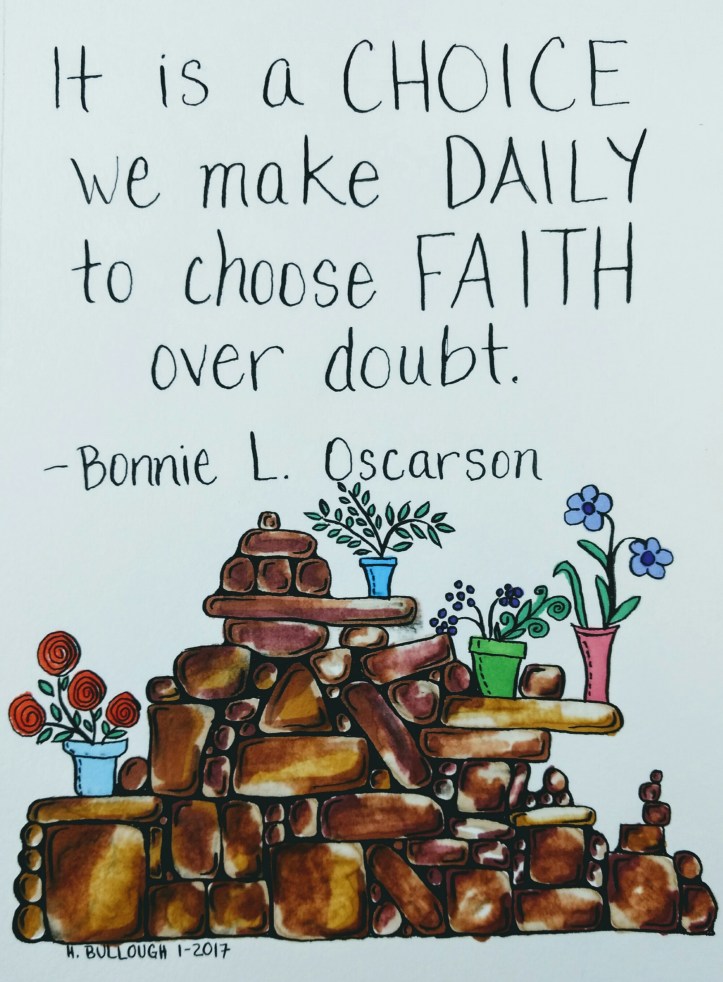 It is a CHOICE
we make DAILY
to choose FAITH
over doubt.
-Bonnie L. Oscarson
H. BULLOUGH 1-2017